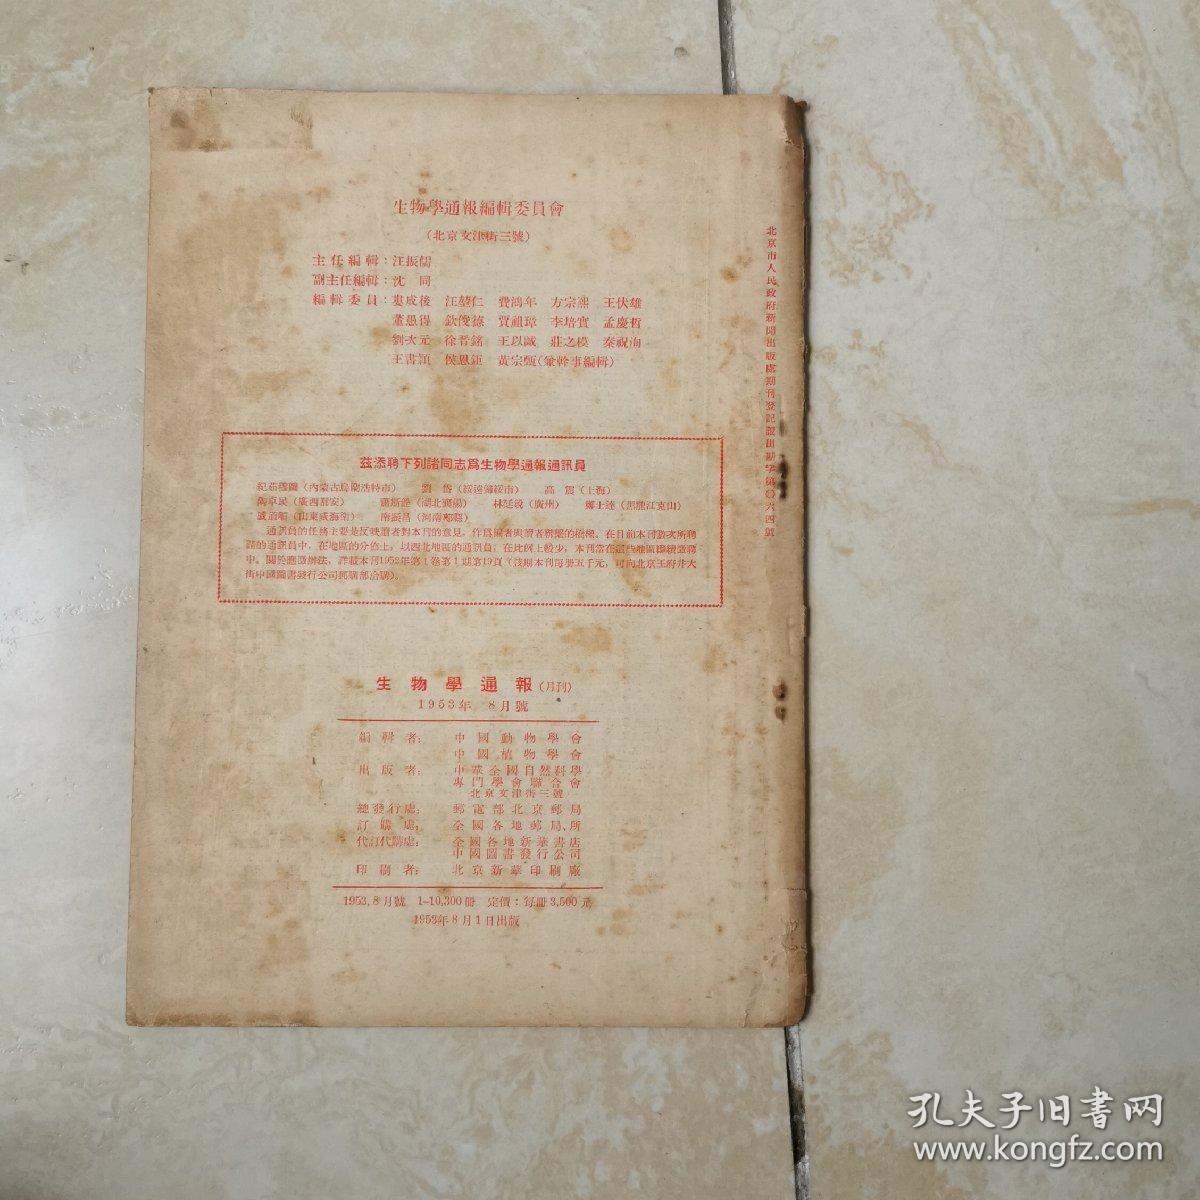 生物學通報編輯委員會
(北京文津街三號)
主任編輯:汪振儒
副主任編輯:沈 同
編輯委員:婁成後 汪堃仁 費鴻年 方宗熙 王伏雄
董愚得 欽俊德 賈祖璋 李培實 孟慶哲
劉次元 徐晋銘 王以誠 莊之模 秦祝洵
王書穎 侯恩鉅 黃宗甄(兼幹事編輯)
茲添聘下列諸同志爲生物學通報通訊員
(內蒙古烏蘭浩特市) 劉岱(綏遠歸綏市) 高震(上海)
(湖北襄陽) 林延銳(廣州) 鄭士達(黑龍江克山)
(山東威海衛) 南振昌
通訊員的任務主要是反映讀者對本刊的意見,作爲編者與讀者聯繫的橋樑。在目前本刊數次所聘
請的通訊員中,在地區的分佈上,以西北地區的通訊員,在比例上較少,本刊當在這些地區繼續徵聘
中。關於應徵辦法,詳載本刊1952年第1卷第1期第19頁(該期本刊每册五千元,可向北京王府井大
街中國圖書發行公司郵購部洽購)。
生物學通報(月刊)
1953年 8月號
編輯者: 中國動物學會
中國植物學會
出版者: 中華全國自然科學
專門學會聯合會
北京文津街三號
總發行處: 郵電部北京郵局
訂購處: 全國各地郵局、所
代訂代購處: 全國各地新華書店
中國圖書發行公司
印刷者: 北京新華印刷廠
1953,8月號 1—10,300冊 定價:每冊3,500元
1953年8月1日出版
北京市人民政府新聞出版處期刊登記證出期字第〇六四號
孔夫子旧书网
www.kongfz.com